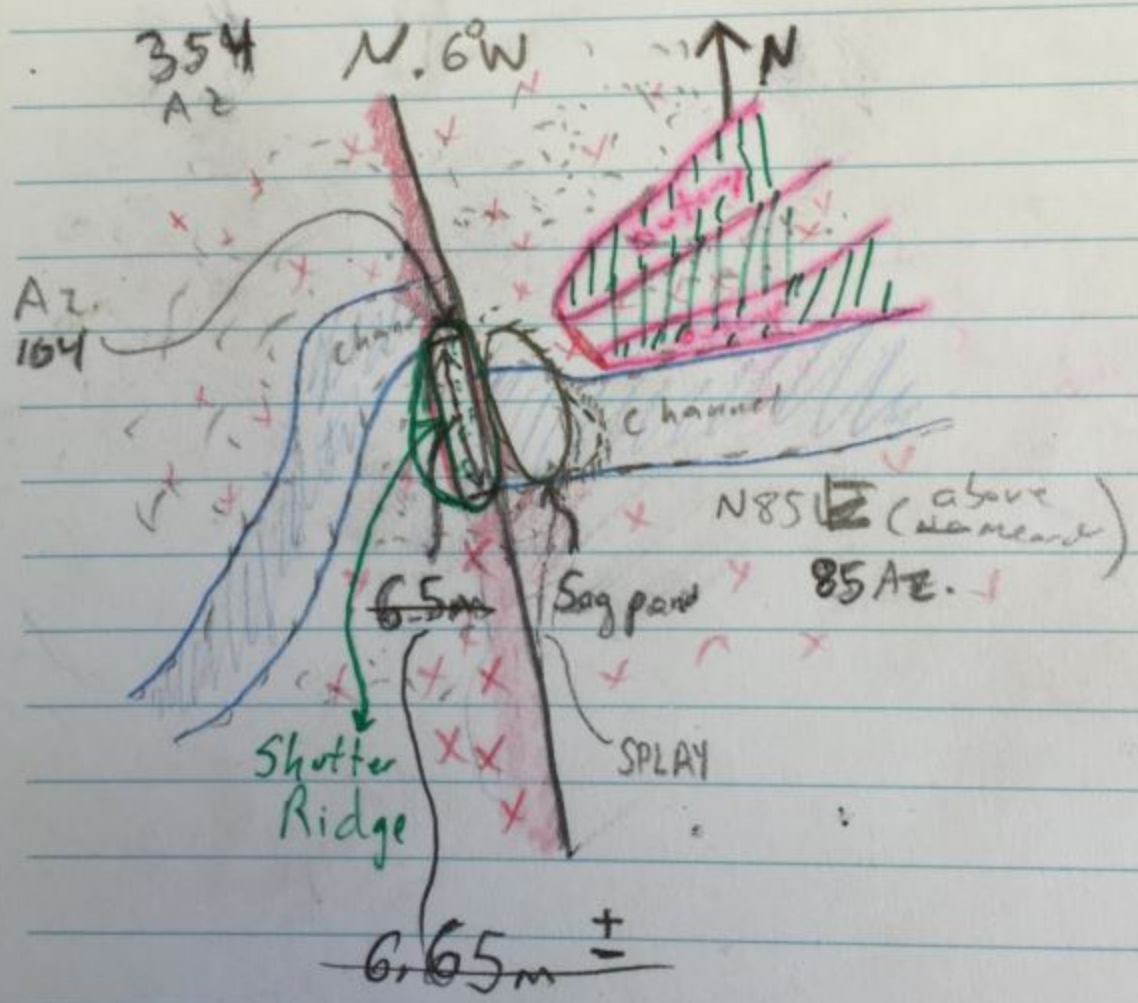 354 N. 6°W N
Az
Az.
164
chann
channel
N85E (above
85 Az.
6.5m Sag pond
SPLAY
Shutter
Ridge
6.65m ±